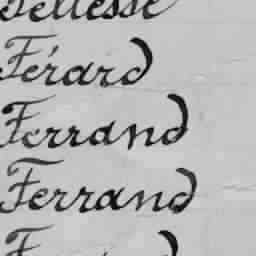 Pellesse
Férard
Ferrand
Ferrand